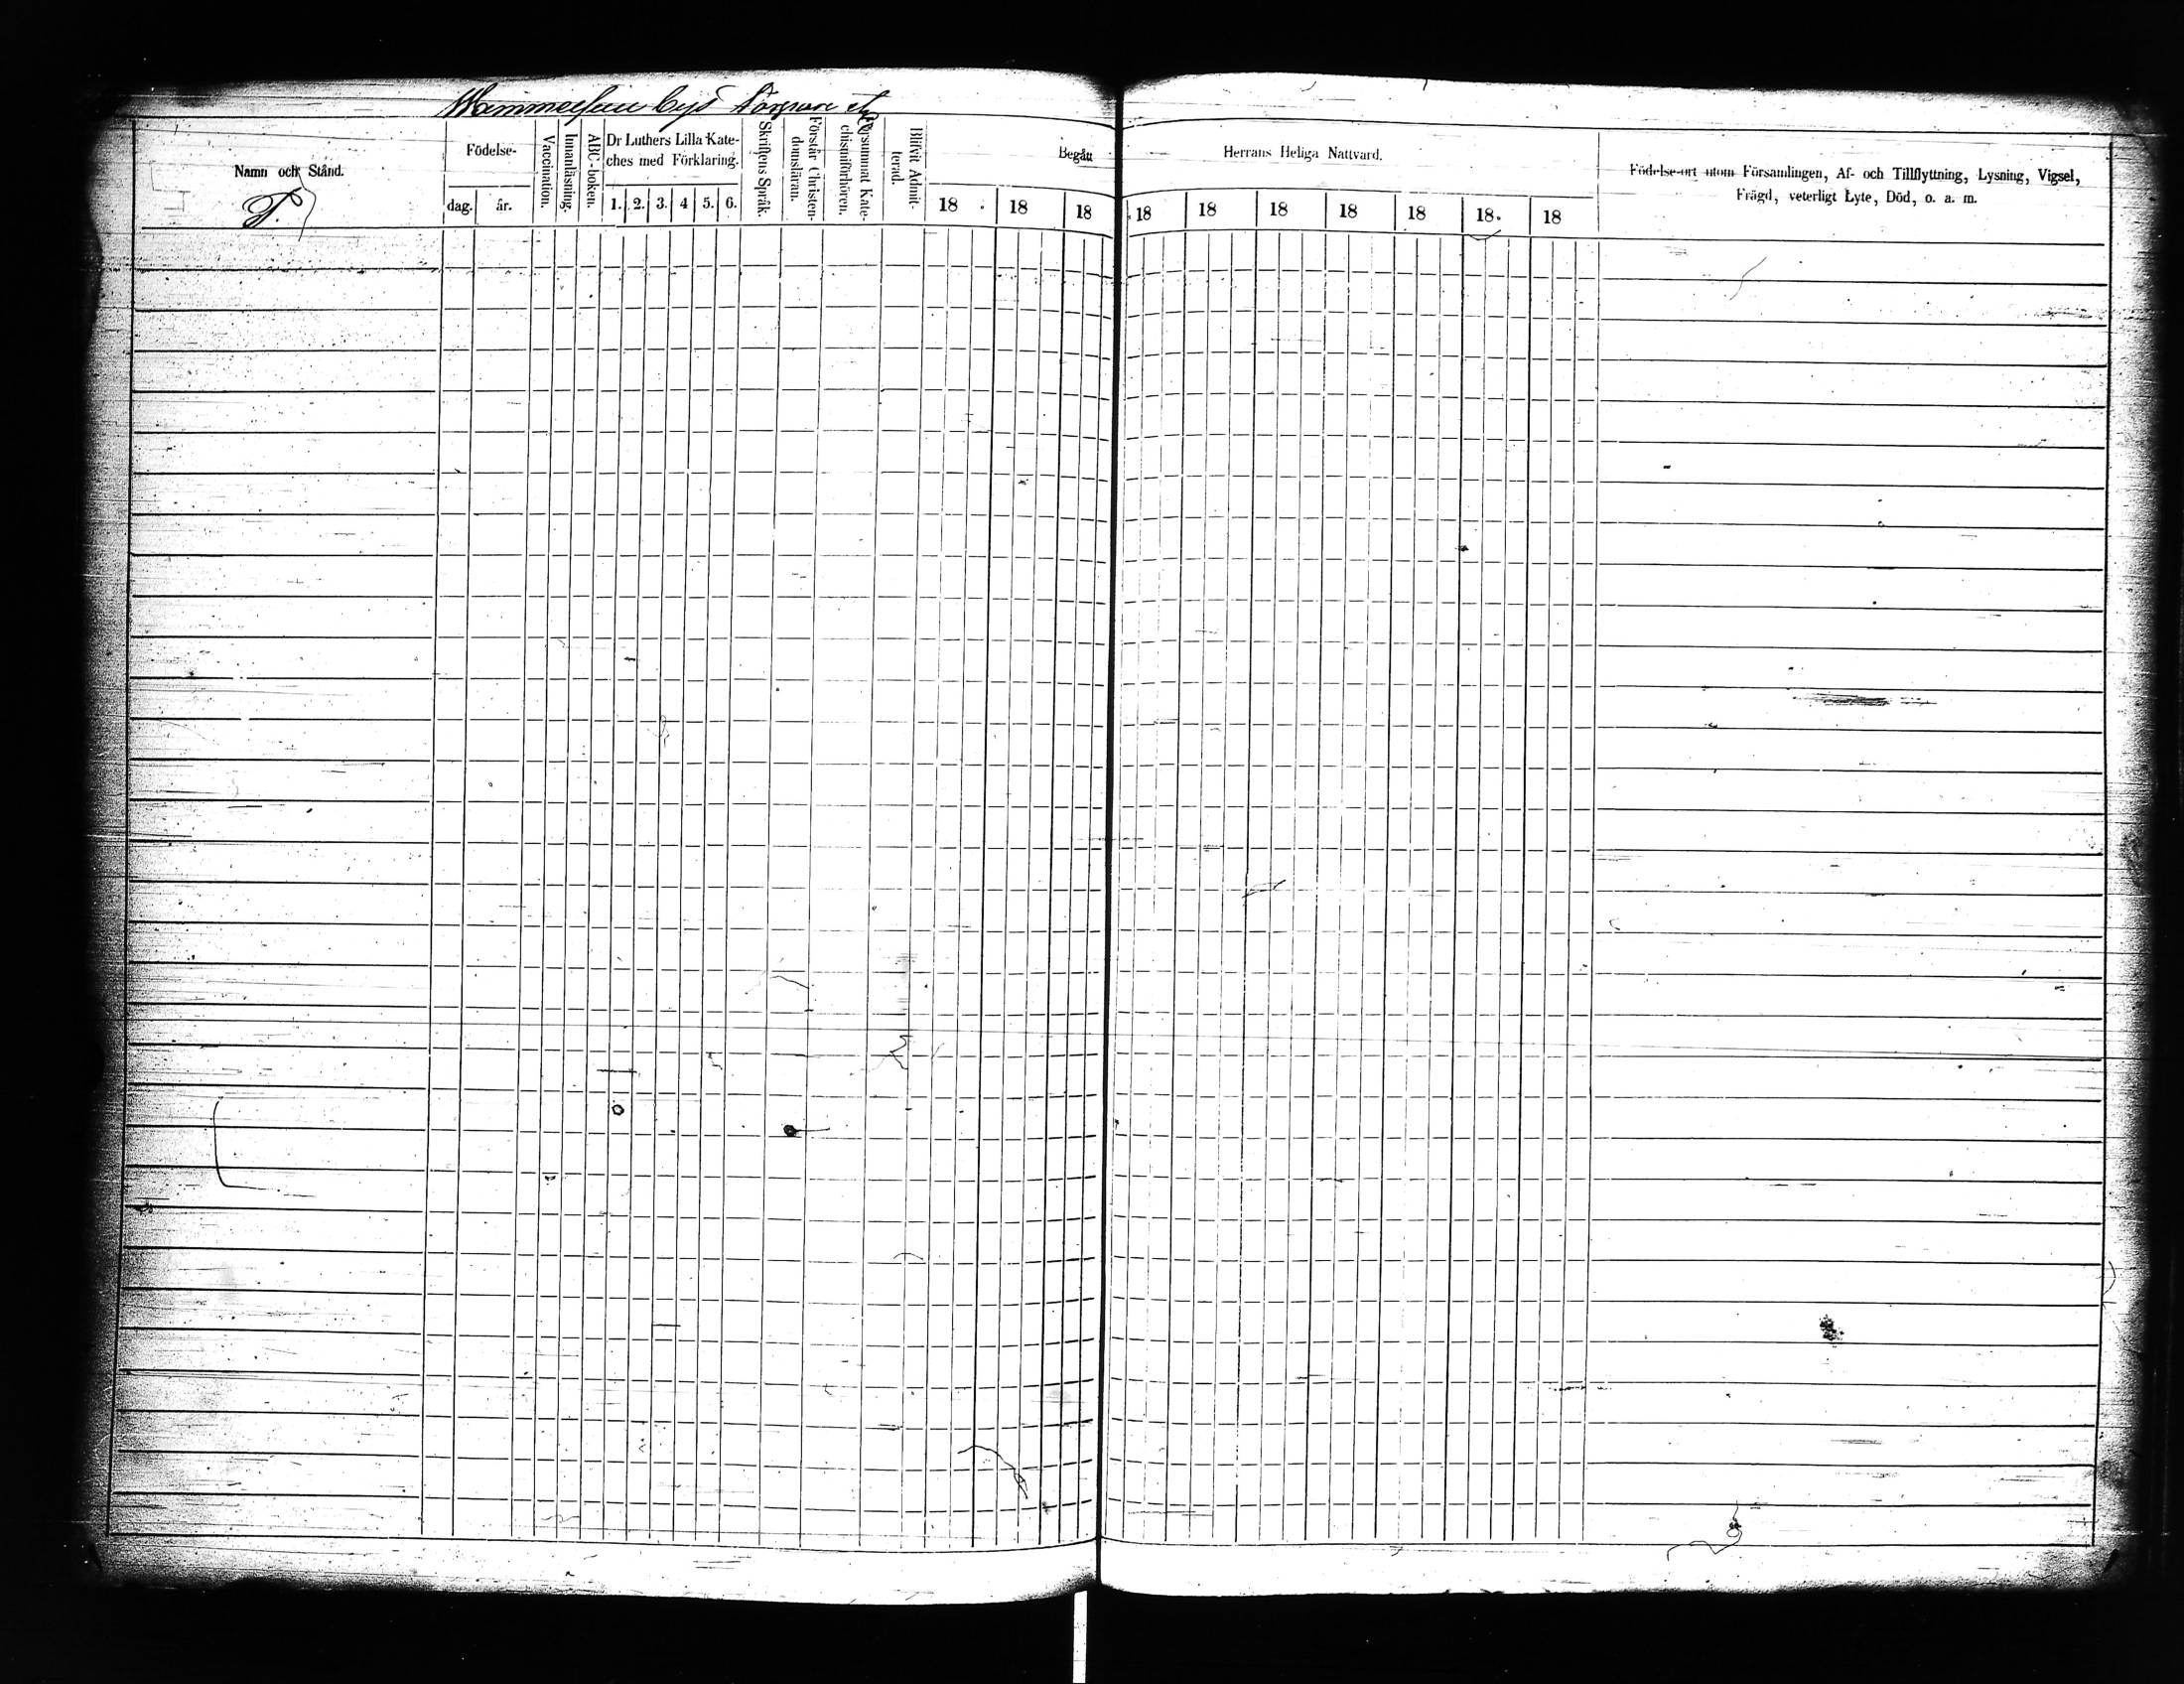 Namn och Stånd.
T.
Födelse-
dag. år.
Vaccination.
Innanläsning.
ABC-boken.
Dr Luthers Lilla Kate-
ches med Förklaring.
1. 2. 3. 4 5. 6.
Skriftens Språk.
Förstår Christen-
domsläran.
Försummat Kate-
chismiförhören.
Blifvit Admit-
terad.
Begått Herrans Heliga Nattvard.
18 18 18 18 18 18 18 18 18. 18
Födelse-ort utom Församlingen, Af- och Tillflyttning, Lysning, Vigsel,
Frägd, veterligt Lyte, Död, o. a. m.